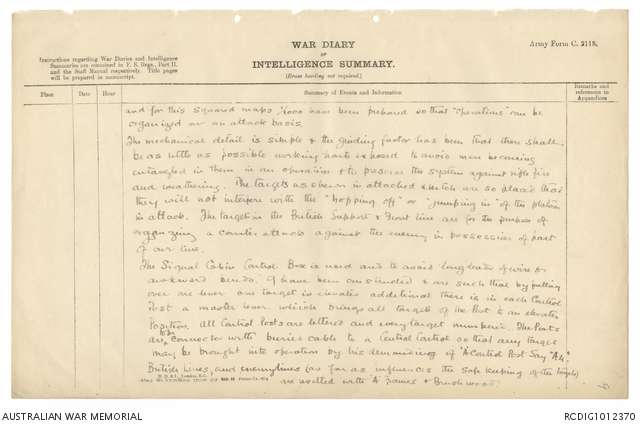 WAR DIARY
OR
INTELLIGENCE SUMMARY.
(Erase heading not required.)
Army Form C. 2118.
Instructions regarding War Diaries and Intelligence
Summaries are contained in F. S. Regs., Part II.
and the Staff Manual respectively. Title pages
will be prepared in manuscript.
Place
Date
Hour
Summary of Events and Information
Remarks and
references to
Appendices
and for this squared maps have been prepared so that "operations" can be
organized on an attack basis.
The mechanical detail is simple & the guiding factor has been that there shall
be as little as possible working parts exposed to avoid men becoming
entangled in them in an operation & to preserve the system against rifle fire
and weathering. The targets as shewn in attached sketch are so placed that
they will not interfere with the "hopping off" or "jumping in" of the platoon
in attack. The targets in the British Support & Front line are for the purpose of
organizing a counter attack against the enemy in possession of part
of our line.
The Signal Cabin Control Box is used and to avoid long leads of wire &
awkward bends. 9 have been constructed & are such that by pulling
over one lever one target is elevated additional there is in each Control
Post a master lever which brings all targets of the Post to an elevated
Position. All Control Posts are lettered and every target numbered. The Posts
are connected with buried cable to a Central Control so that any target
may be brought into operation by his demanding of "A Control Post Say "A4".
British lines, and enemy lines (as far as influences the safe keeping of the targets)
are revetted with "A" frames & Brushwood.
AUSTRALIAN WAR MEMORIAL
RCDIG1012370